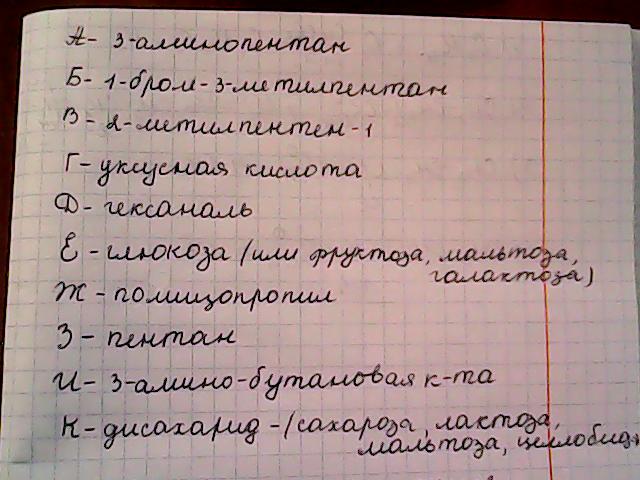 А- 3-аминопентан
Б- 1-бром-3-метилпентан
В- 2-метилпентен-1
Г- уксусная кислота
Д- гексаналь
Е- глюкоза (или фруктоза, мальтоза,
галактоза)
Ж- полиизопропил
З- пентан
И- 3-амино-бутановая к-та
К- дисахарид -(сахароза, лактоза,
мальтоза, целлобиоз